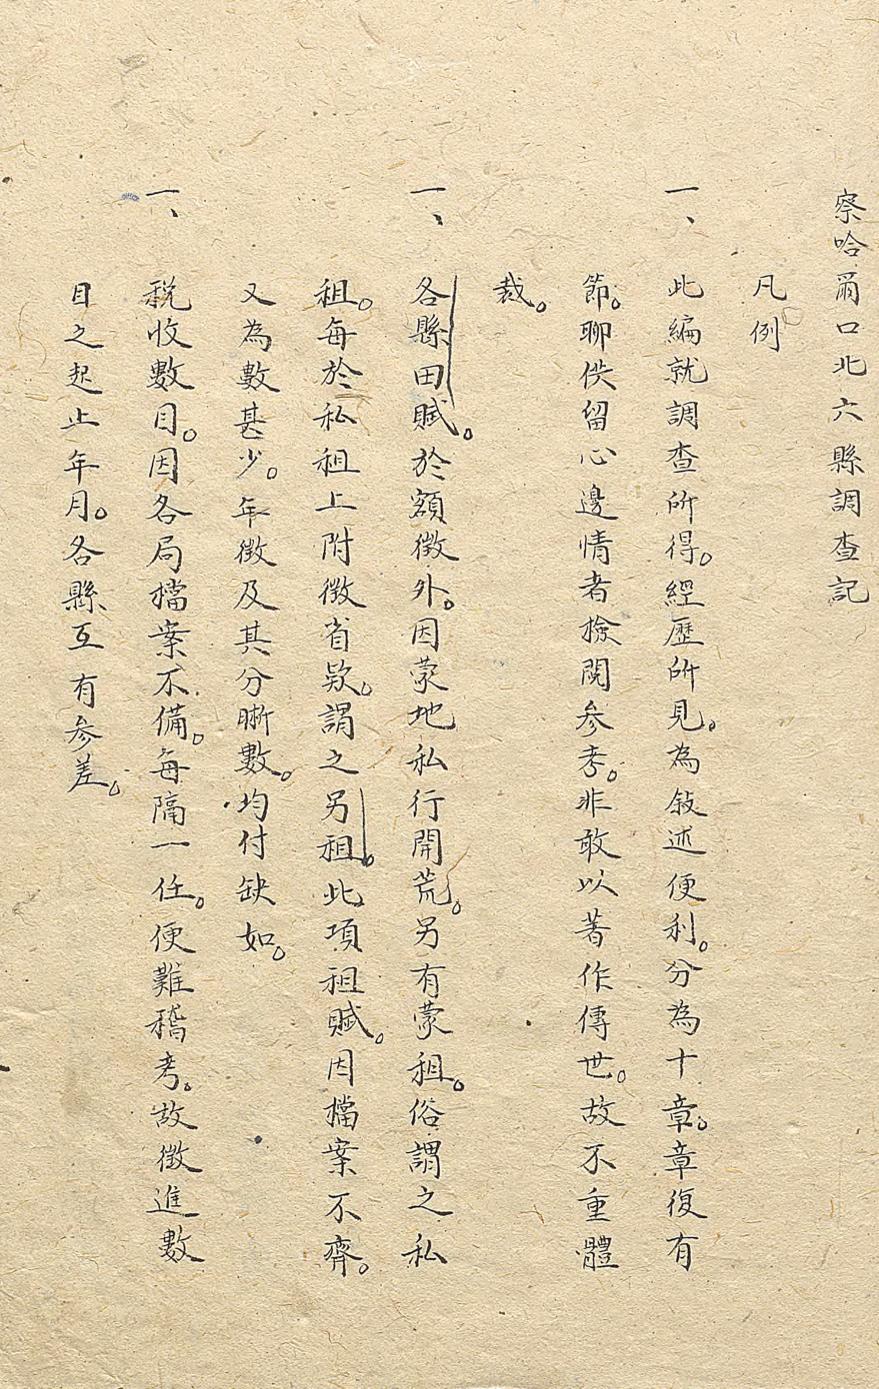 察哈爾口北六縣調查記
凡例
一、此編就調查所得。經歷所見。為敍述便利。分為十章。章復有
節。聊供留心邊情者檢閱參考。非敢以著作傳世。故不重體
裁。
一、各縣田賦。於額徵外。因蒙地私行開荒。另有蒙租。俗謂之私
租。每於私租上附徵省欵。謂之另租。此項租賦。因檔案不齊。
又為數甚少。年徵及其分晰數。均付缺如。
一、稅收數目。因各局檔案不備。每隔一任。便難稽考。故徵進數
目之起止年月。各縣互有參差。